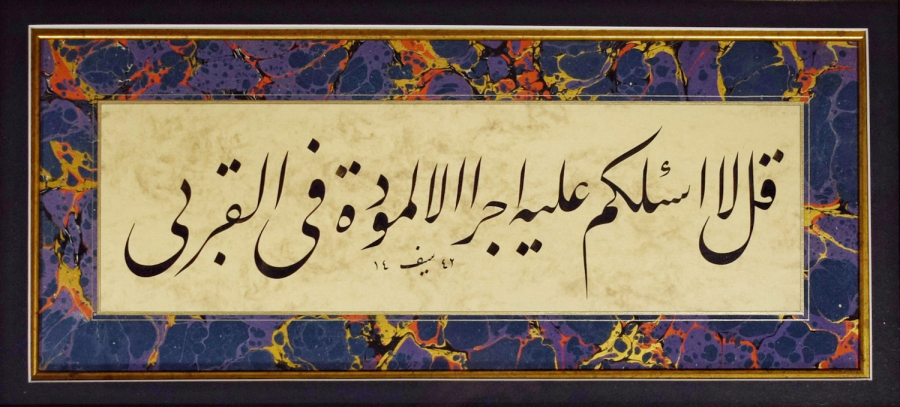 قل لا اسئلكم عليه اجرا الا المودة فى القربى
١٤ سيف ٤٢